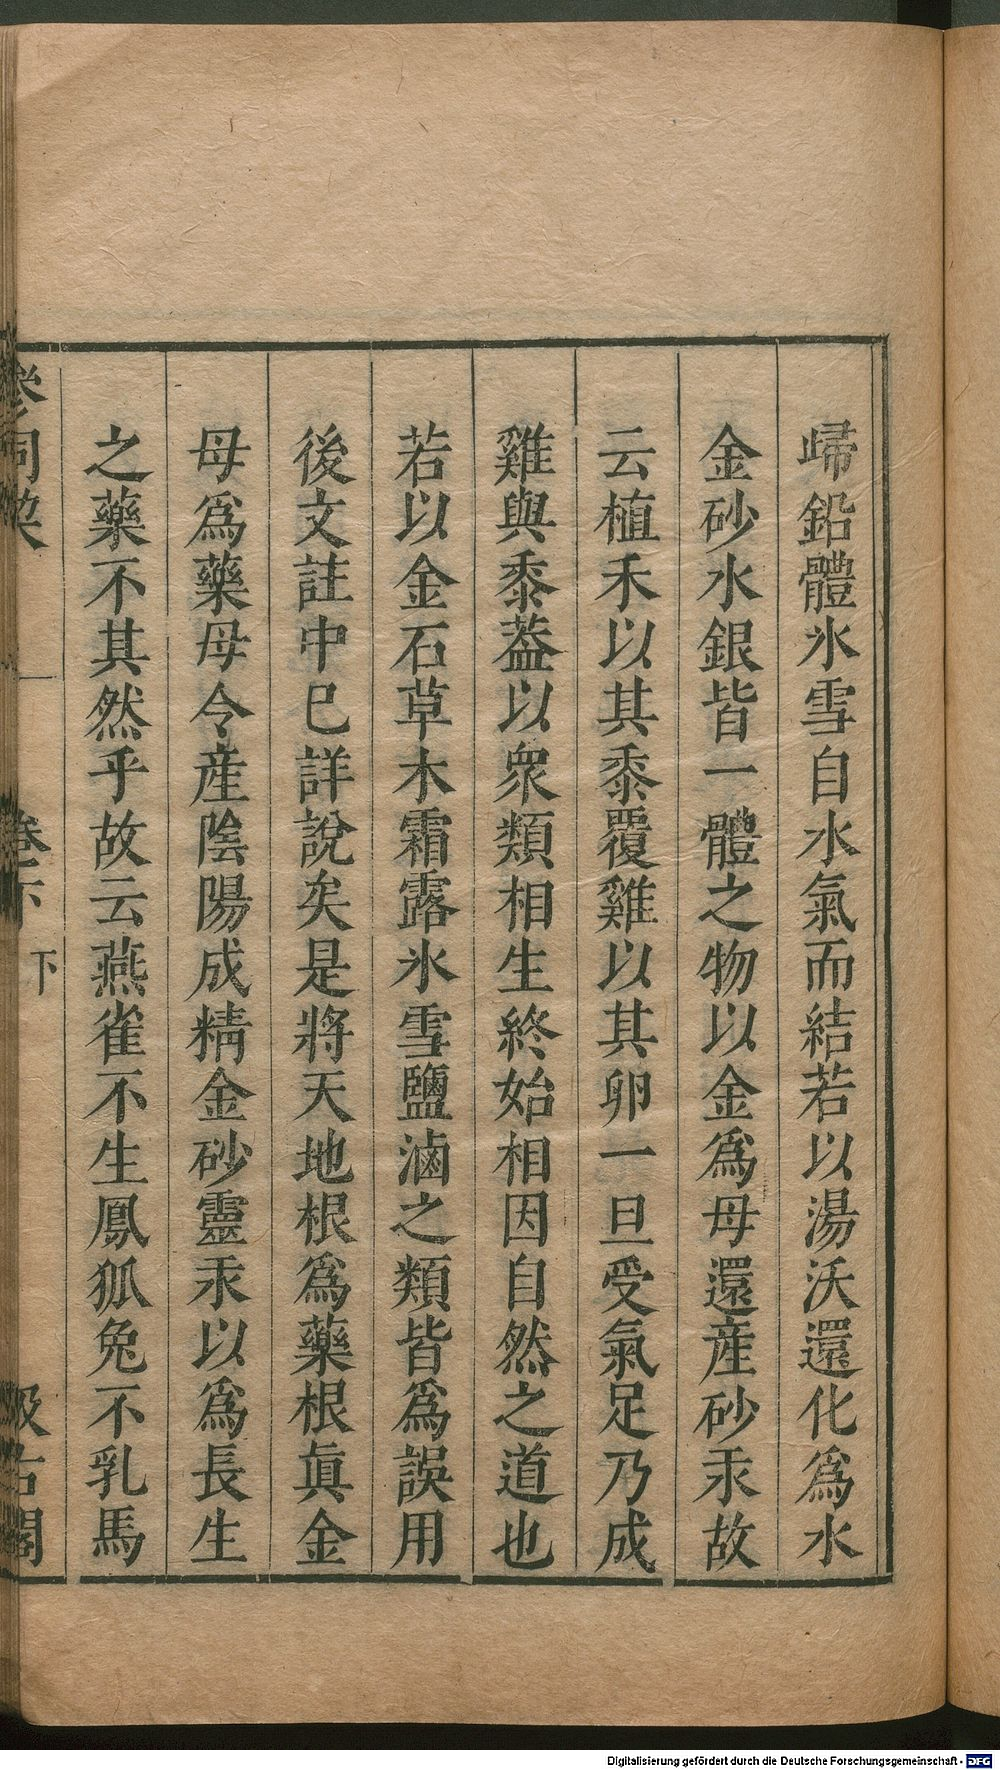 歸鉛體氷雪自水氣而結若以湯沃還化爲水
金砂水銀皆一體之物以金爲母還産砂汞故
云植禾以其黍覆雞以其卵一旦受氣足乃成
雞與黍葢以衆類相生終始相因自然之道也
若以金石草木霜露氷雪鹽滷之類皆爲誤用
後文註中巳詳說矣是將天地根爲藥根眞金
母爲藥母令産陰陽成精金砂靈汞以爲長生
之藥不其然乎故云燕雀不生鳳狐兔不乳馬
參同契
卷下
下
汲古閣
Digitalisierung gefördert durch die Deutsche Forschungsgemeinschaft - DFG